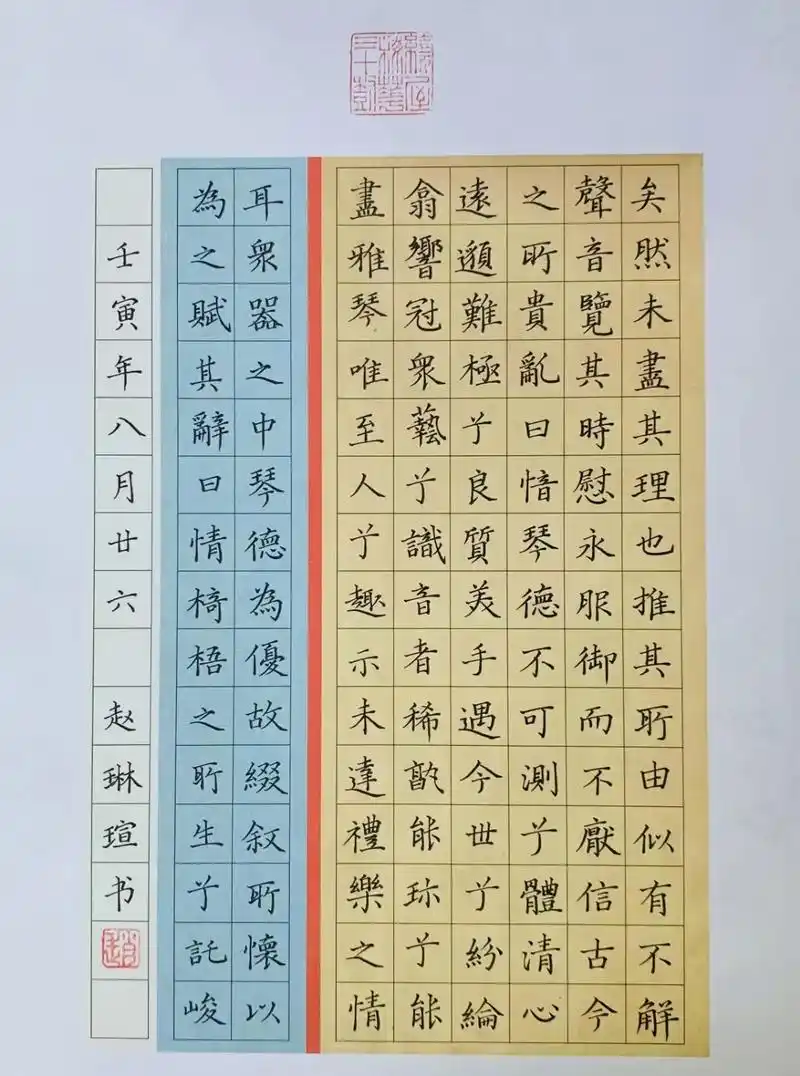 矣然未盡其理也推其所由似有不解
聲音覽其時慰永服御而不厭信古今
之所貴亂曰愔琴德不可測兮體清心
遠邈難極兮良質美手遇今世兮紛綸
翕響冠衆藝兮識音者稀孰能珎兮能
盡雅琴唯至人兮趣示未達禮樂之情
耳衆器之中琴德為優故綴叙所懷以
為之賦其辭曰情椅梧之所生兮託峻
壬寅年八月廿六 赵琳瑄书